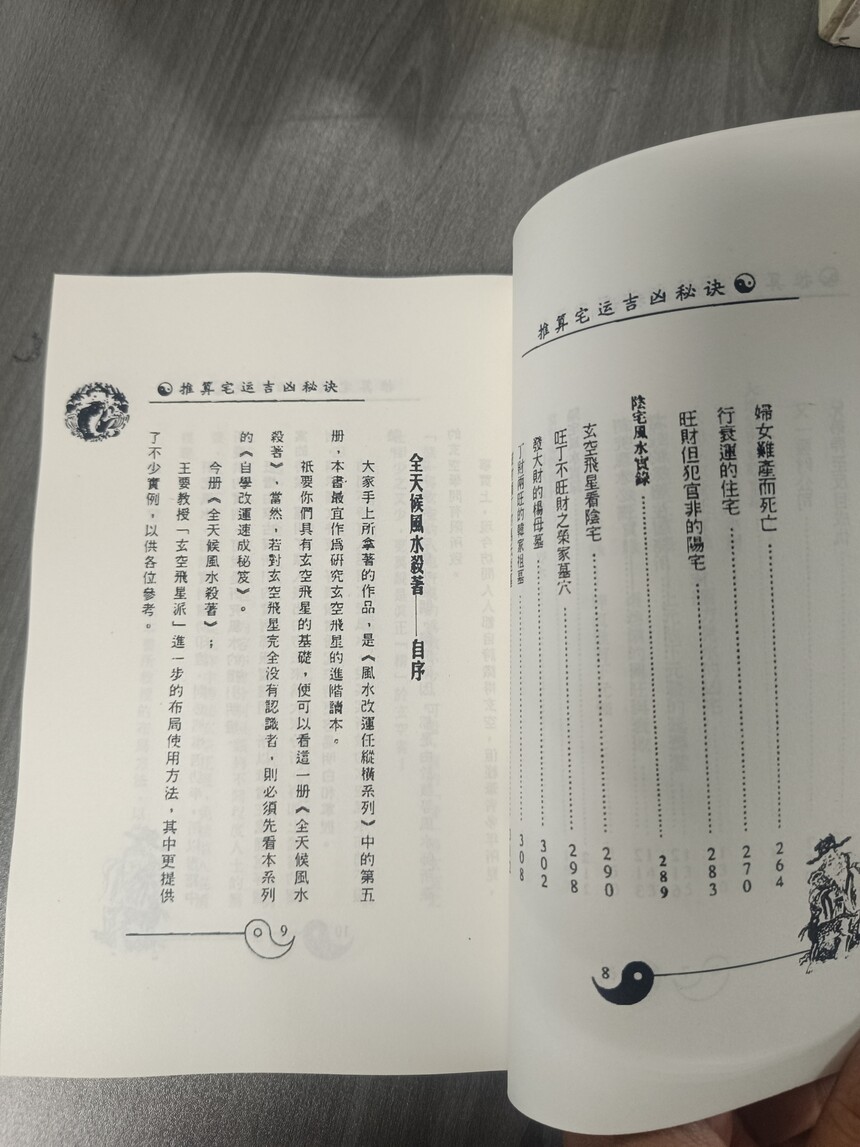 推算宅运吉凶秘诀
婦女難產而死亡 264
行衰運的住宅 270
旺財但犯官非的陽宅 283
陰宅風水實錄 289
玄空飛星看陰宅 290
旺丁不旺財之榮家墓穴 298
發大財的楊母墓 302
丁財兩旺的韓家祖墓 308
8
推算宅运吉凶秘诀
全天候風水殺著——自序
大家手上所拿著的作品，是《風水改運任縱橫系列》中的第五
册，本書最宜作爲研究玄空飛星的進階讀本。
祇要你們具有玄空飛星的基礎，便可以看這一册《全天候風水
殺著》，當然，若對玄空飛星完全没有認識者，則必須先看本系列
的《自學改運速成秘笈》。
今册《全天候風水殺著》；
王要教授「玄空飛星派」進一步的布局使用方法，其中更提供
了不少實例，以供各位參考。
9